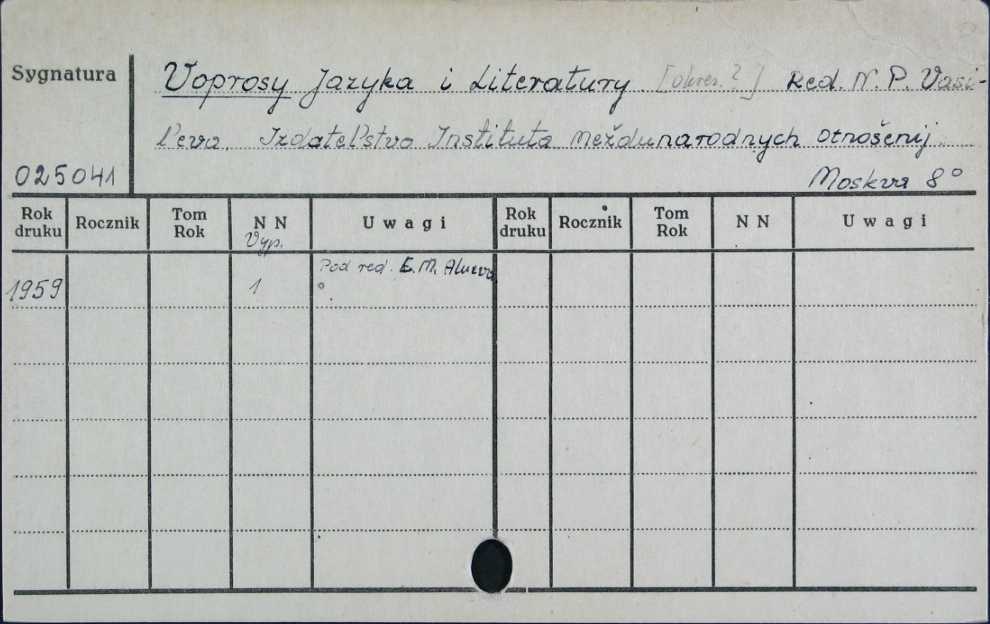 Sygnatura
Voprosy Jazyka i Literatury [okres. ?] Red. N. P. Vasi-
l'eva. Izdatel'stvo Instituta meždunarodnych otnošenij.
025041
Moskva 8°
Rok druku Rocznik Tom Rok N N Uwagi Rok druku Rocznik Tom Rok N N Uwagi
Vyp.
Pod red. E. M.
1959 1